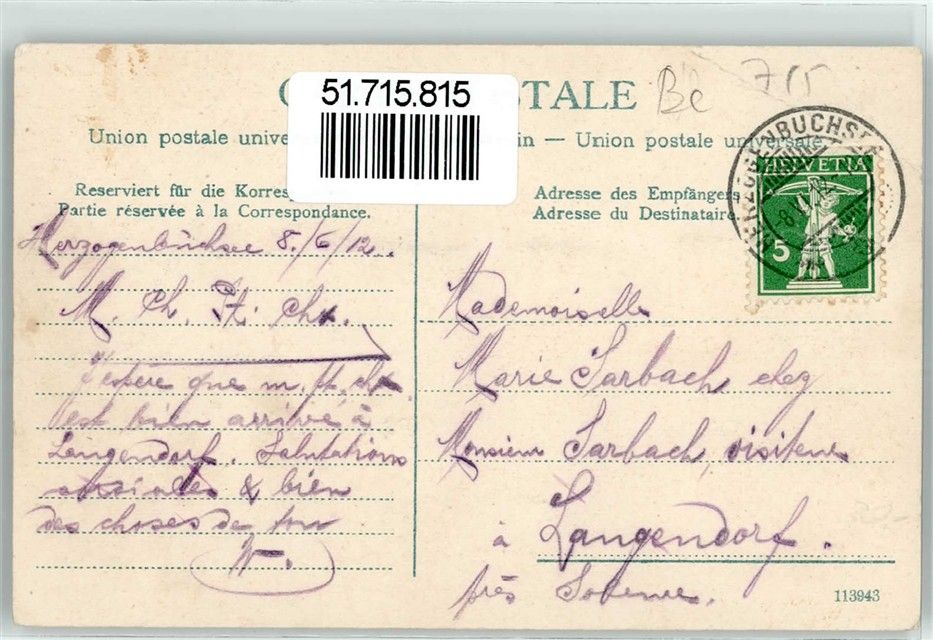 51.715.815
STALE
Be 715
Union postale unive in — Union postale universelle
Reserviert für die Korres
Partie réservée à la Correspondance.
Adresse des Empfängers
Adresse du Destinataire.
HERZOGENBUCHSEE
HELVETIA
5
Herzogenbuchsee 8./6/12.
M. Ch. Pt. Chx.
J'espère que m. pt. chx
est bien arrivé à
Langendorf. Salutations
amicales & bien
des choses de ton
W.
Mademoiselle
Marie Sarbach chez
Monsieur Sarbach, visiteur
à Langendorf.
près Soleure.
113943